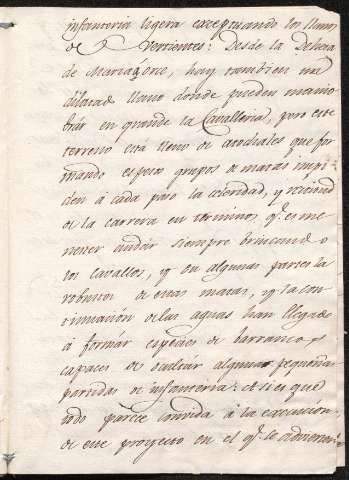 infanteria ligera exceptuando los llanos
de Vertientes: Desde la Dehesa
de Mariagorce, hay tambien un
dilatado llano donde pueden manio
brár en grande la Cavalleria, pero este
terreno está lleno de atochales que for
mando espesos grupos de matas impi
den á cada paso la celeridad, y
de la carrera en terminos q.e es me
nester andár siempre brincando
los Cavallos, y en algunas partes lo
robusto de estas matas, y la con
tinuación de las aguas han llegado
á formar especies de barrancos
capaces de ocultár algunas pequeñas
partidas de infanteria: Asi es que
todo parece convida á la execución
de este proyecto en el q.e